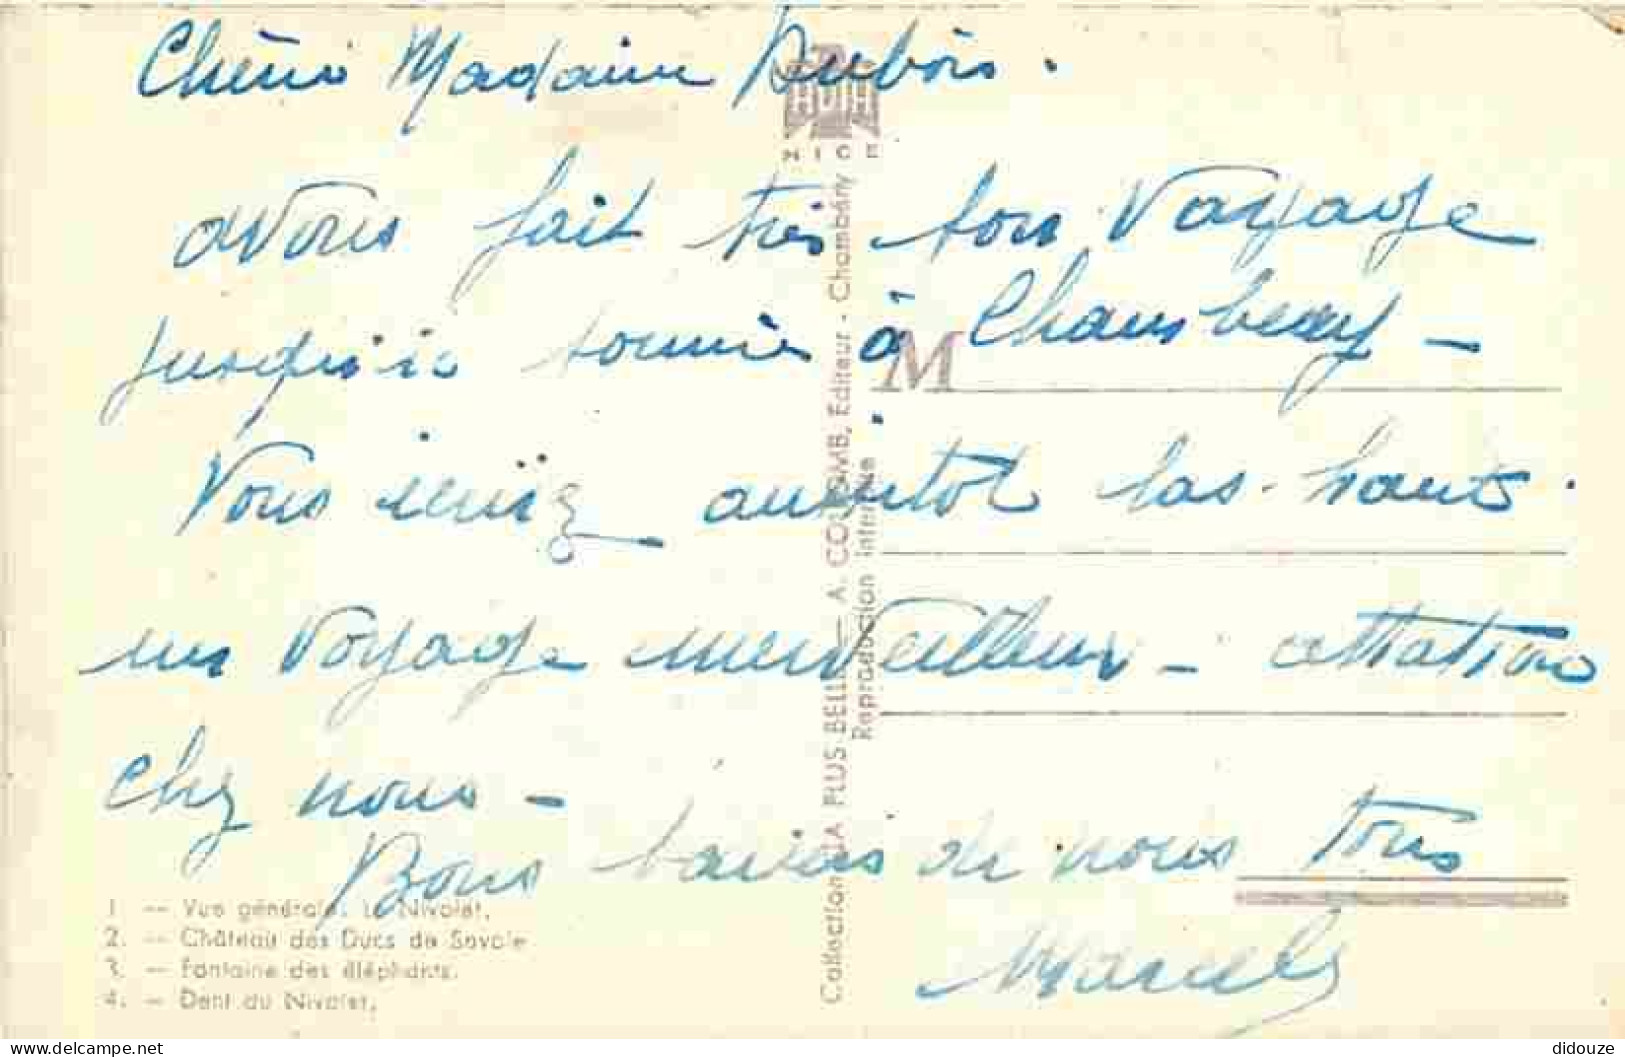 Chère Madame Dubois.
NICE
avons fait très bon Voyage
jusqu'ici sommes à Chambery -
M
Vous aussitot las haut.
un Voyage merveilleux - attations
chez nous -
Bons baisers de nous tous
Marcel
1. — Vue générale. Le Nivolet.
2. — Château des Ducs de Savoie
3. — Fontaine des éléphants.
4. — Dent du Nivolet.
Collection LA PLUS BELLE — A. COLOMB, Editeur - Chambéry
Reproduction interdite
https://www.delcampe.net
didouze